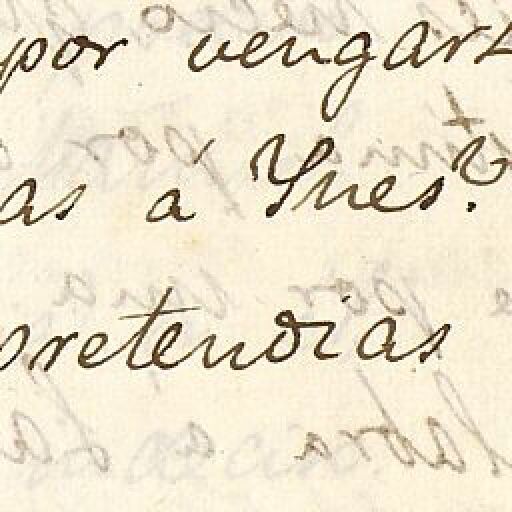 por vengar
as á Ynes?
pretendias